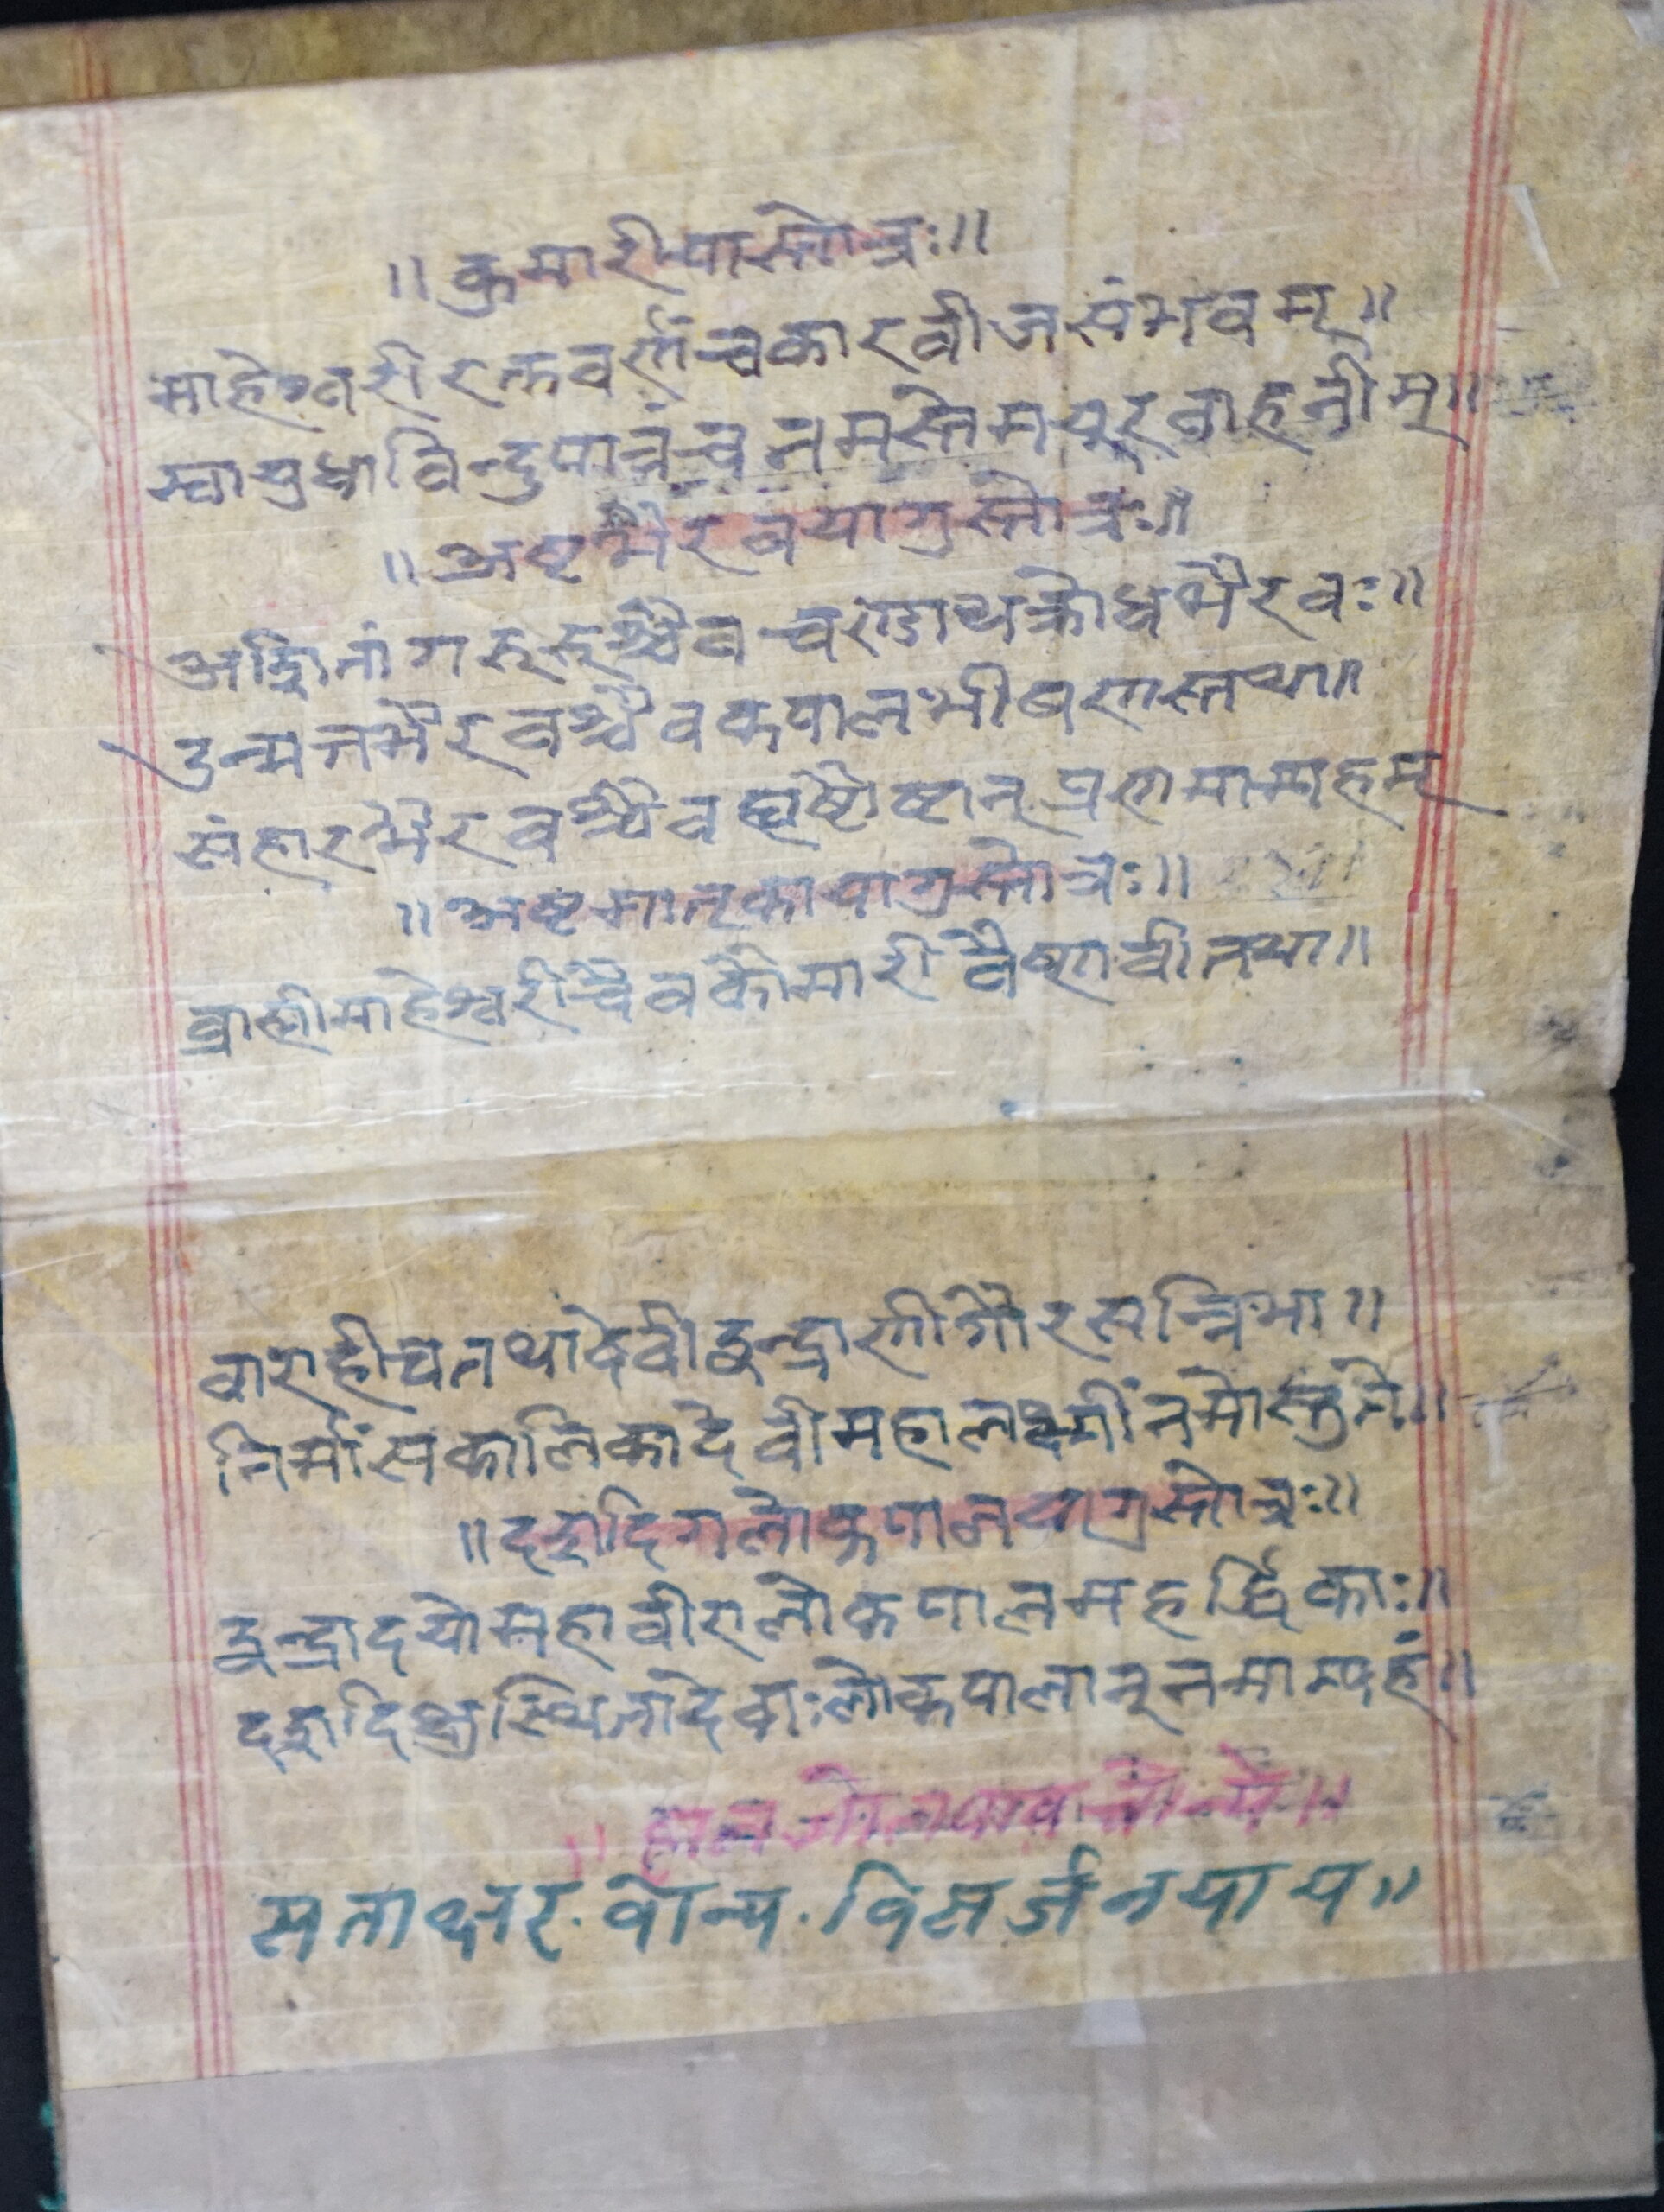 ॥ कुमारीयास्तोत्रः॥
माहेश्वरी रक्तवर्णं चकारवीजसंभवम्॥
स्वायुधाविन्दुपात्रंच नमस्तेमयुर वाहनीम्॥
॥ अष्टभैरवयागुस्तोत्रः॥
असितांगरुरुश्चैव चण्डाथक्रोधभैरवः॥
उन्मत्तभैरवश्चैवकपालभीषणस्तथा॥
संहारभैरवश्चैवह्यष्टौष्टान् प्रणमामाहम्
॥ अष्टमातृकायागुस्तोत्रः॥
व्राह्मीमाहेश्वरीचैवकौमारीवैष्णवीतथा॥
वाराहीचतथादेवीइन्द्राणीगौरसन्निभा॥
निर्मांसकालिकादेवीमहालक्ष्मीं नमोस्तुते॥
॥दशदिगलोकपालयागुस्तोत्रः॥
इन्द्रादयोमहावीरालोकपालमहर्द्धिकाः॥
दशदिक्षुस्थितादेवाःलोकपालान्नमाम्यहं॥
सताक्षर. वोन्य. विसर्जनयाय॥